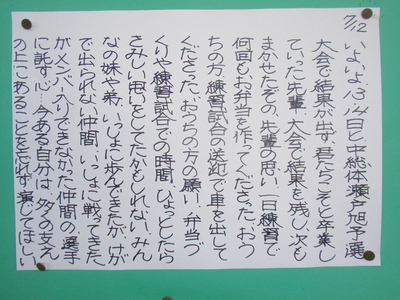 7/12
いよいよ13、14日と中総体瀬戸旭予選
大会で結果が出す。君たちこそと卒業し
ていった先輩。大会で結果を残し、次も
まかせたぞの、先輩の思い。一日練習で
何回もお弁当を作ってくださった、おう
ちの方。練習試合の送迎で車を出して
くださった、おうちの方の願い。弁当づ
くりや練習試合での時間、ひょっとしたら
さみしい思いをしてたかもしれない、みん
なの妹や弟。いっしょに歩んできたが、けが
で出られない仲間。いっしょに戦ってきた
がメンバー入りできなかった仲間の、選手
に託す心…今ある自分は、多くの支え
の上にあることを忘れず、演じてほしい